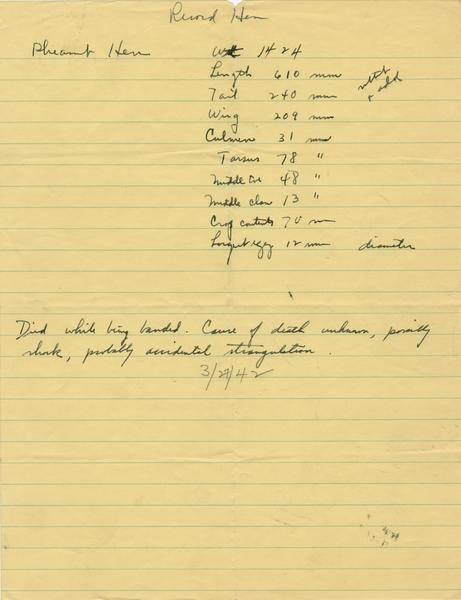 Record Hen
Pheasant Hen Wt 1424
Length 610 mm
Tail 240 mm
Wing 209 mm
Culmen 31 mm
Tarsus 78 "
Middle toe 48 "
Middle claw 13 "
Crop contents 70
Largest egg 12 mm diameter
& add
Died while being banded. Cause of death unknown, possibly
shock, probably accidental strangulation.
3/27/42